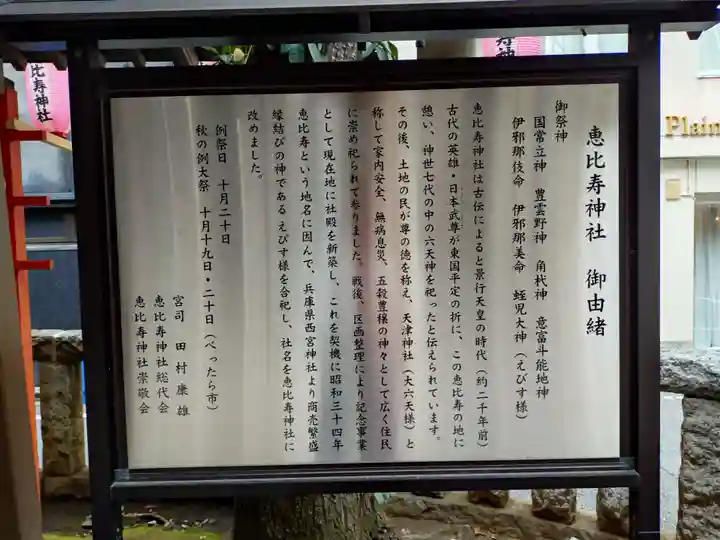 恵比寿神社　御由緒
御祭神
国常立神　豊雲野神　角杙神　意富斗能地神
伊邪那伎命　伊邪那美命　蛭児大神（えびす様）
恵比寿神社は古伝によると景行天皇の時代（約二千年前）
古代の英雄・日本武尊が東国平定の折に、この恵比寿の地に
憩い、神世七代の中の六天神を祀ったと伝えられています。
その後、土地の民が尊の徳を称え、天津神社（大六天様）と
称して家内安全、無病息災、五穀豊穣の神々として広く住民
に崇め祀られて参りました。戦後、区画整理により記念事業
として現在地に社殿を新築し、これを契機に昭和三十四年
恵比寿という地名に因んで、兵庫県西宮神社より商売繁盛
縁結びの神である えびす様を合祀し、社名を恵比寿神社に
改めました。
例祭日　十月二十日
秋の例大祭　十月十九日・二十日（べったら市）
宮司　田村康雄
恵比寿神社総代会
恵比寿神社崇敬会
比寿神社
寿神
Plain